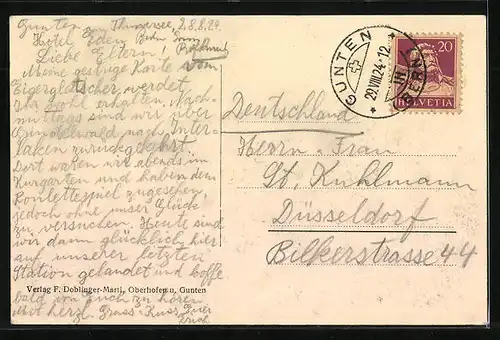 Gunten Thunersee, 28.8.24.
Hotel Eden
Liebe Eltern!
Meine gestrige Karte vom
Eigergletscher werdet
Ihr wohl erhalten. Nach-
mittags sind wir über
Grindelwald nach Inter-
laken zurückgekehrt.
Dort waren wir abends im
Kurgarten und haben dem
Roulettespiel zugesehen,
jedoch ohne unser Glück
zu versuchen. Heute sind
wir dann glücklich hier
auf unserer letzten
Station gelandet und hoffe
bald von Euch zu hören.
Mit herzl. Gruss & Kuss Euer
Erich
Verlag F. Doblinger-Marti, Oberhofen u. Gunten
GUNTEN
29.VIII.24.12
(BERN)
20
HELVETIA
Deutschland
Herrn & Frau
St. Kuhlmann
Düsseldorf
Bilkerstrasse 44